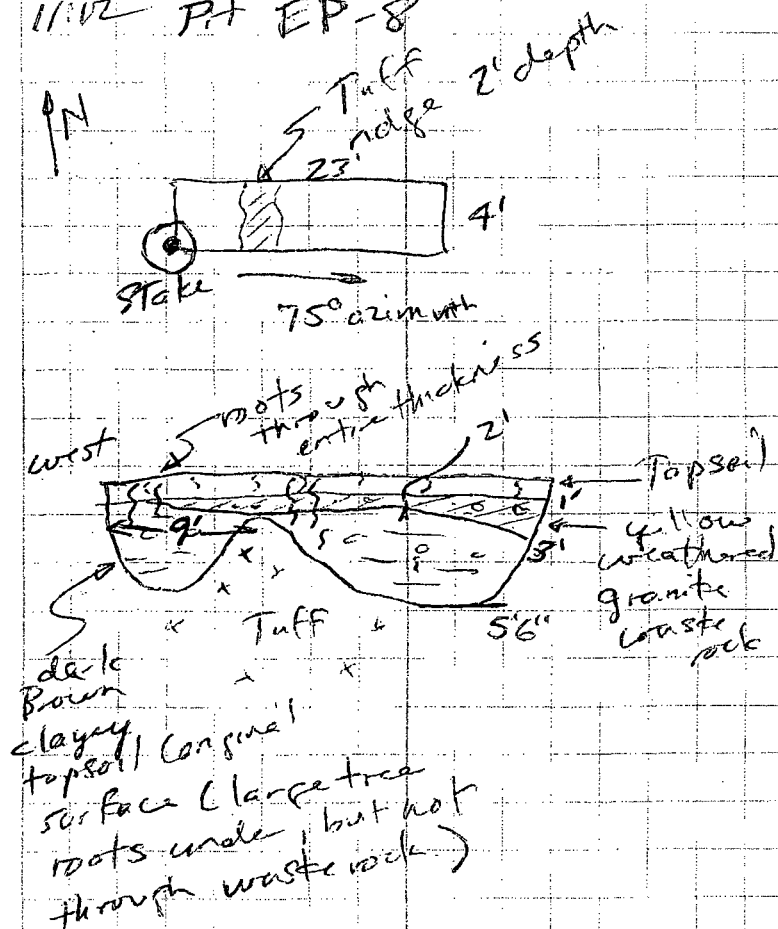 11:02 Pit EP-8
N
Tuff
ridge 2' depth
23'
4'
Stake
75° azimuth
roots
through
entire thickness
west
2'
Topsoil
1'
9'
yellow
weathered
granite
waste
rock
3'
Tuff
5'6"
dark
Brown
clayey
topsoil (original
surface (large tree
roots under, but not
through waste rock)